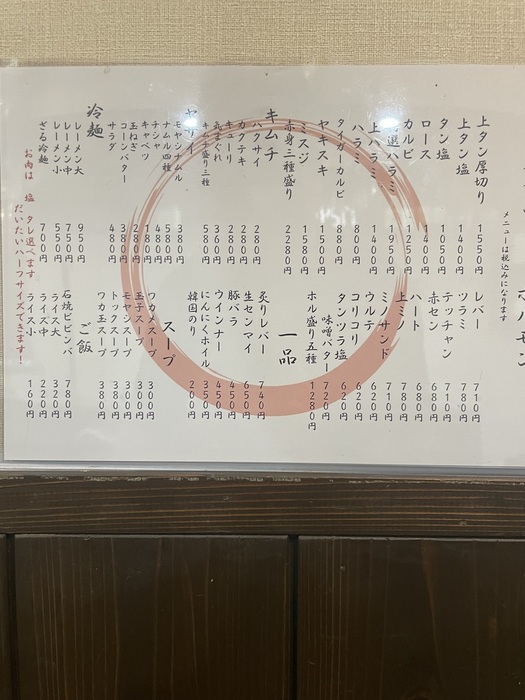 メニューは税込みになります
上タン厚切り 1550円
上タン塩 1400円
タン塩 1050円
ロース 1400円
カルビ 1250円
選ハラミ 1950円
上ハラミ
ハラミ 800円
タイガーカルビ 880円
ヤキスキ
ミスジ 1580円
赤身三種盛り 2280円
キムチ
ハクサイ 280円
カクテキ 280円
キューリ 280円
気まぐれ 360円
キムチ盛り三種 550円
ヤサイ
モヤシナムル 380円
ナムル四種 580円
チシャ 480円
キャベツ 180円
玉ねぎ
コーンバター 380円
サラダ 480円
冷麺
レーメン大 950円
レーメン中 750円
レーメン小 550円
ざる冷麺 700円
お肉は 塩 タレ選べます
だいたいハーフサイズできます！
ホルモン
レバー 710円
ツラミ 780円
テッチャン 710円
赤セン 680円
ハート 680円
上ミノ 780円
ミノサンド 710円
ウルテ 620円
コリコリ 620円
タンツラ塩 620円
味噌バター 720円
ホル盛り五種 1280円
一品
炙りレバー 740円
生センマイ 650円
豚バラ 450円
ウインナー 450円
にんにくホイル 350円
韓国のり 200円
スープ
ワカメスープ 300円
玉子スープ 300円
モヤシスープ 330円
トックスープ 380円
ワカ玉スープ 380円
ご飯
石焼ビビンバ 780円
ライス大 320円
ライス中 220円
ライス小 160円